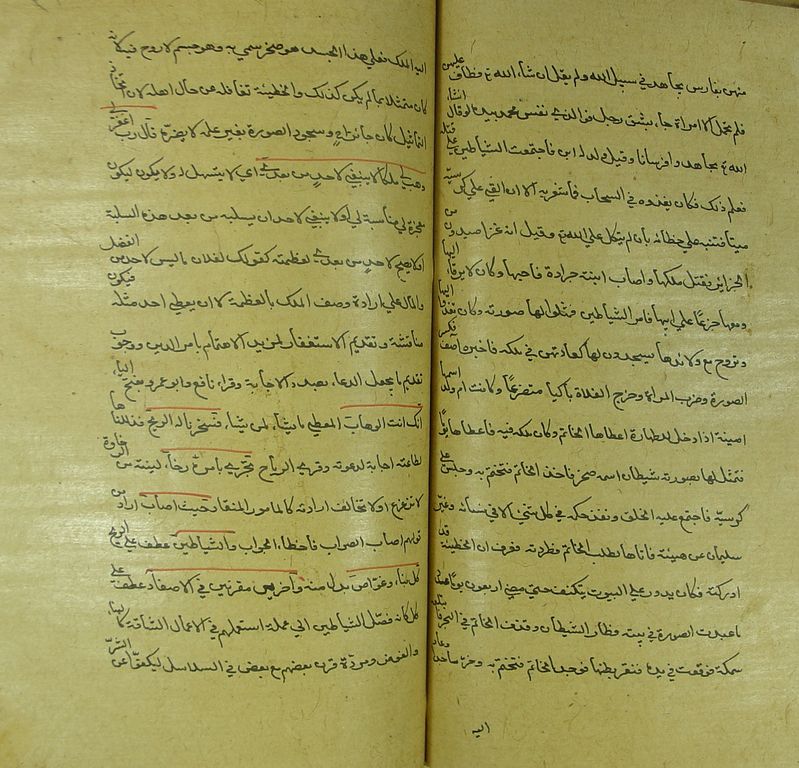 منهن بفارس يجاهد في سبيل الله ولم يقل ان شاء الله فطاف عليهن
فلم تحمل الا امراة جاءت بشق رجل فوالذي نفس محمد بيده لو قال انشاء
الله لجاهدوا فرسانا وقيل ولد له ابن فاجتمعت الشياطين علي قتله
فعلم ذلك فكان يغدوه في السحاب فما شعر به الا ان القي علي كرسيه
ميتا فتنبه علي خطائه بان لم يتوكل علي الله وقيل انه غزا صيدون من
الجزائر فقتل ملكها واصاب ابنته جرادة فاحبها وكان لا يرقأ
دمعها جزعا علي ابيها فامر الشياطين فمثلوا لها صورته وكان تغدوا اليها
وتروح مع ولائدها يسجدون لها كعادتهن في ملكه فاخبره اصف فكسر
الصورة وضرب المراة وخرج الفلاة باكيا متضرعا وكانت ام ولد اسمها
امينة اذا دخل للطهارة اعطاها الخاتم وكان ملكه فيه فاعطاها يوما
فتمثل لها بصورته شيطان اسمه صخر فاخذ الخاتم فتختم به وجلس علي
كرسيه فاجتمع عليه الخلق ونفذ حكمه في كل شئ الا في نسائه وغير
سليمان عن هيئته فاتاها بطلب الخاتم فطردته فعرف ان الخطيئة قد
ادركته فكان يدور علي البيوت يتكفف حتي مضي اربعون يوما عدد
ما عبدت الصورة في بيته فطار الشيطان وقذف الخاتم في البحر
سمكة فوقعت في يده فبقر بطنها فوجد الخاتم فتختم به وخر ساجدا وعاد
اليه
اليه الملك فعلي هذا الجسد هو صخر سمي به وهو جسم لا روح فيه لانه
كان متمثلا بما لم يكن كذلك والخطيئة تغافله عن حال اهله لان اتخاذ
التماثيل كان جائزا ح وسجود الصورة بغير علمه لا يضره قال رب اغفر لي
وهب لي ملكا لا ينبغي لاحد من بعدي اي لا يتسهل له ولا يكون ليكون
معجزة لي مناسبة لي او لا ينبغي لاحد ان يسلبه من بعد هذه السلبة
او لا يصح لاحد من بعدي لعظمته كقولك لفلان ما ليس لاحد من الفضل
والمال علي ارادة وصف الملك بالعظمة لا ان يعطي احد مثله فيكون
منافسة وتقديم الاستغفار لمزيد الاهتمام بامر الدين ووجوب
تقديم ما يجعل الدعاء بصدد الاجابة وقراء نافع وابو عمرو بفتح الياء
انك انت الوهاب المعطي ما يشاء لمن يشاء فسخرنا له الريح فذللناها
لطاعته اجابة لدعوته وقرئ الرياح تجري بامره رخاء لينة من الرخاوة
لا تزعزع او لا تخالف ارادته كالمامور المنقاد حيث اصاب اراد من
قولهم اصاب الصواب فاخطاء الجواب والشياطين عطف علي الريح
كل بناء وغواص بدل منه واخرين مقرنين في الاصفاد عطف علي
كل كانه فصل الشياطين الي عملة استعملهم في الاعمال الشاقة كالبناء
والغوص ومردة قرن بعضهم مع بعض في السلاسل ليكفوا عن الشر